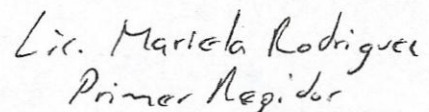 Lic. Mariela Rodriguez
Primer Regidor